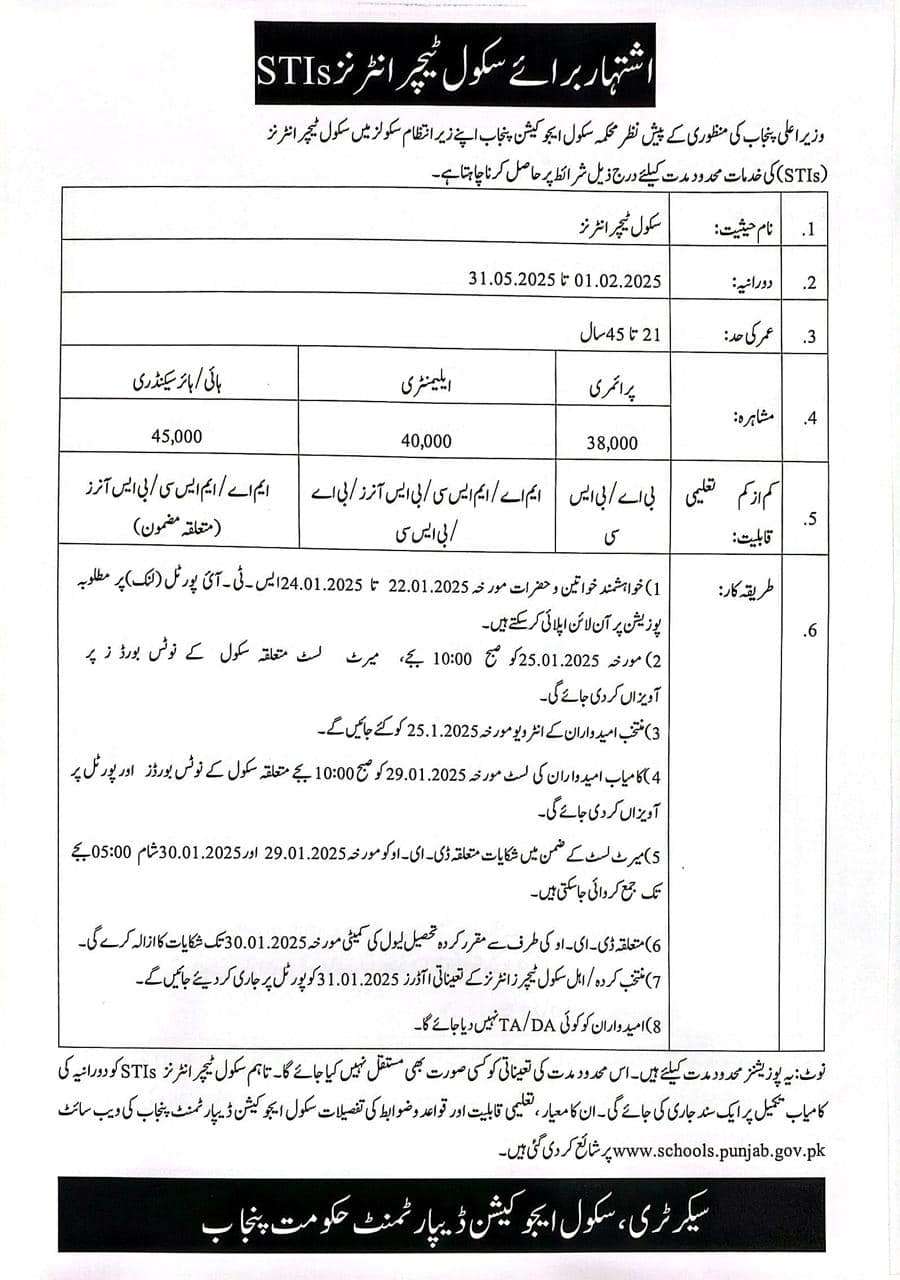 اشتہار برائے سکول ٹیچر انٹرنز STIs
وزیر اعلی پنجاب کی منظوری کے پیش نظر محکمہ سکول ایجوکیشن پنجاب اپنے زیر انتظام سکولز میں سکول ٹیچر انٹرنز
(STIs) کی خدمات محدود مدت کیلئے درج ذیل شرائط پر حاصل کرنا چاہتا ہے۔
1. نام حیثیت: سکول ٹیچر انٹرنز
2. دورانیہ: 01.02.2025 تا 31.05.2025
3. عمر کی حد: 21 تا 45 سال
4. مشاہرہ: پرائمری ایلیمنٹری ہائی/ہائر سیکنڈری
38,000 40,000 45,000
5. کم از کم تعلیمی بی اے/بی ایس ایم اے/ایم ایس سی/بی ایس آنرز/بی اے ایم اے/ایم ایس سی/بی ایس آنرز
قابلیت: سی /بی ایس سی (متعلقہ مضمون)
6. طریقہ کار: 1) خواہشمند خواتین و حضرات مورخہ 22.01.2025 تا 24.01.2025 ایس۔ٹی۔آئی پورٹل (لنک) پر مطلوبہ
پوزیشن پر آن لائن اپلائی کر سکتے ہیں۔
2) مورخہ 25.01.2025 کو صبح 10:00 بجے، میرٹ لسٹ متعلقہ سکول کے نوٹس بورڈ ز پر
آویزاں کر دی جائے گی۔
3) منتخب امیدواران کے انٹرویو مورخہ 25.1.2025 کو کئے جائیں گے۔
4) کامیاب امیدواران کی لسٹ مورخہ 29.01.2025 کو صبح 10:00 بجے متعلقہ سکول کے نوٹس بورڈز اور پورٹل پر
آویزاں کر دی جائے گی۔
5) میرٹ لسٹ کے ضمن میں شکایات متعلقہ ڈی۔ای۔او کو مورخہ 29.01.2025 اور 30.01.2025 شام 05:00 بجے
تک جمع کروائی جا سکتی ہیں۔
6) متعلقہ ڈی۔ای۔او کی طرف سے مقرر کردہ تحصیل لیول کی کمیٹی مورخہ 30.01.2025 تک شکایات کا ازالہ کرے گی۔
7) منتخب کردہ/اہل سکول ٹیچرز انٹرنز کے تعیناتی آڈرز 31.01.2025 کو پورٹل پر جاری کر دیئے جائیں گے۔
8) امیدواران کو کوئی TA/DA نہیں دیا جائے گا۔
نوٹ: یہ پوزیشنز محدود مدت کیلئے ہیں۔ اس محدود مدت کی تعیناتی کو کسی صورت بھی مستقل نہیں کیا جائے گا۔ تاہم سکول ٹیچر انٹرنز STIs کو دورانیہ کی
کامیاب تکمیل پر ایک سند جاری کی جائے گی۔ ان کا معیار، تعلیمی قابلیت اور قواعد و ضوابط کی تفصیلات سکول ایجوکیشن ڈیپارٹمنٹ پنجاب کی ویب سائٹ
www.schools.punjab.gov.pk پر شائع کر دی گئی ہیں۔
سیکرٹری، سکول ایجوکیشن ڈیپارٹمنٹ حکومت پنجاب